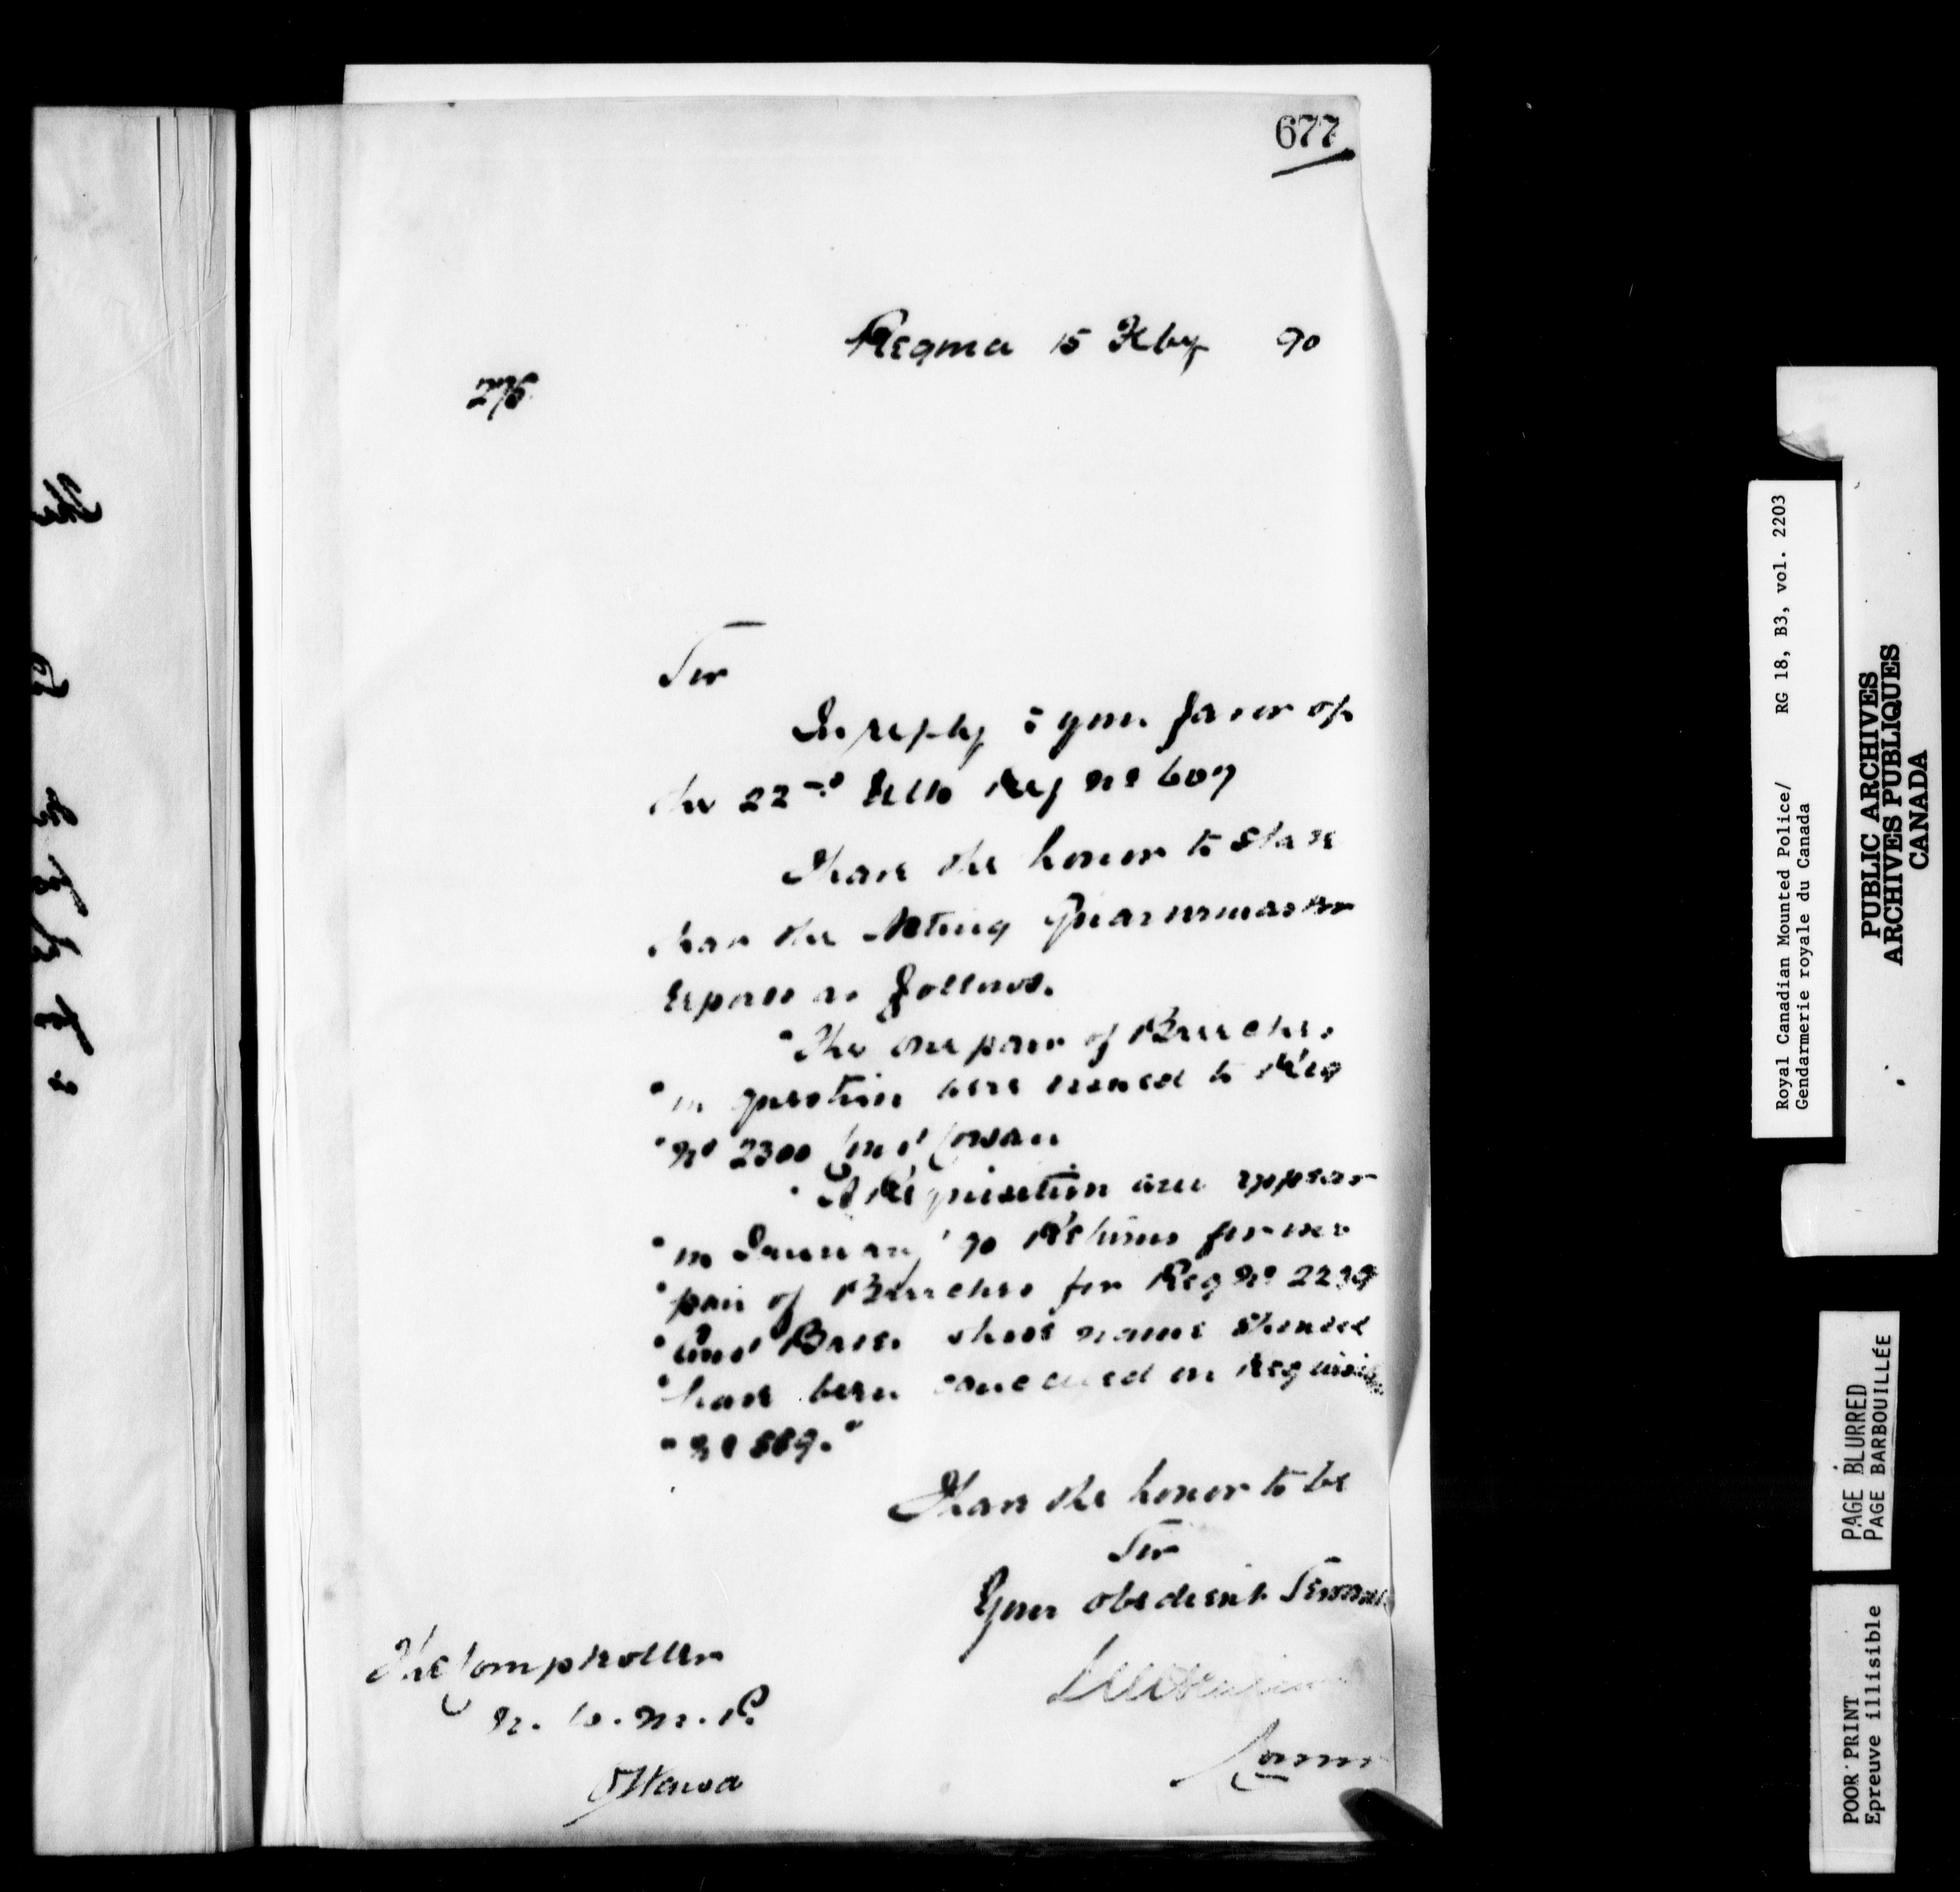 677
Regina 15 Feby 90
275
Sir
In reply to your favor of
the 22nd Ulto Reg No 607
I have the honor to state
that the Acting Quartermaster
reports as follows.
"The one pair of Breeches
"in question were issued to Reg
"No 2300 Const Cowan
"A Requisition will appear
"in January '90 Returns for one
"pair of Breeches for Reg No 2239
"Const whose name should
"have been cancelled on Requisition
"No 889."
I have the honor to be
Sir
Your obedient Servant
Comm
The Comptroller
N. W. M. P.
Ottawa
The
Royal Canadian Mounted Police/ RG 18, B3, vol. 2203
Gendarmerie royale du Canada
PUBLIC ARCHIVES
ARCHIVES PUBLIQUES
CANADA
PAGE BLURRED
PAGE BARBOUILLÉE
POOR PRINT
Epreuve illisible